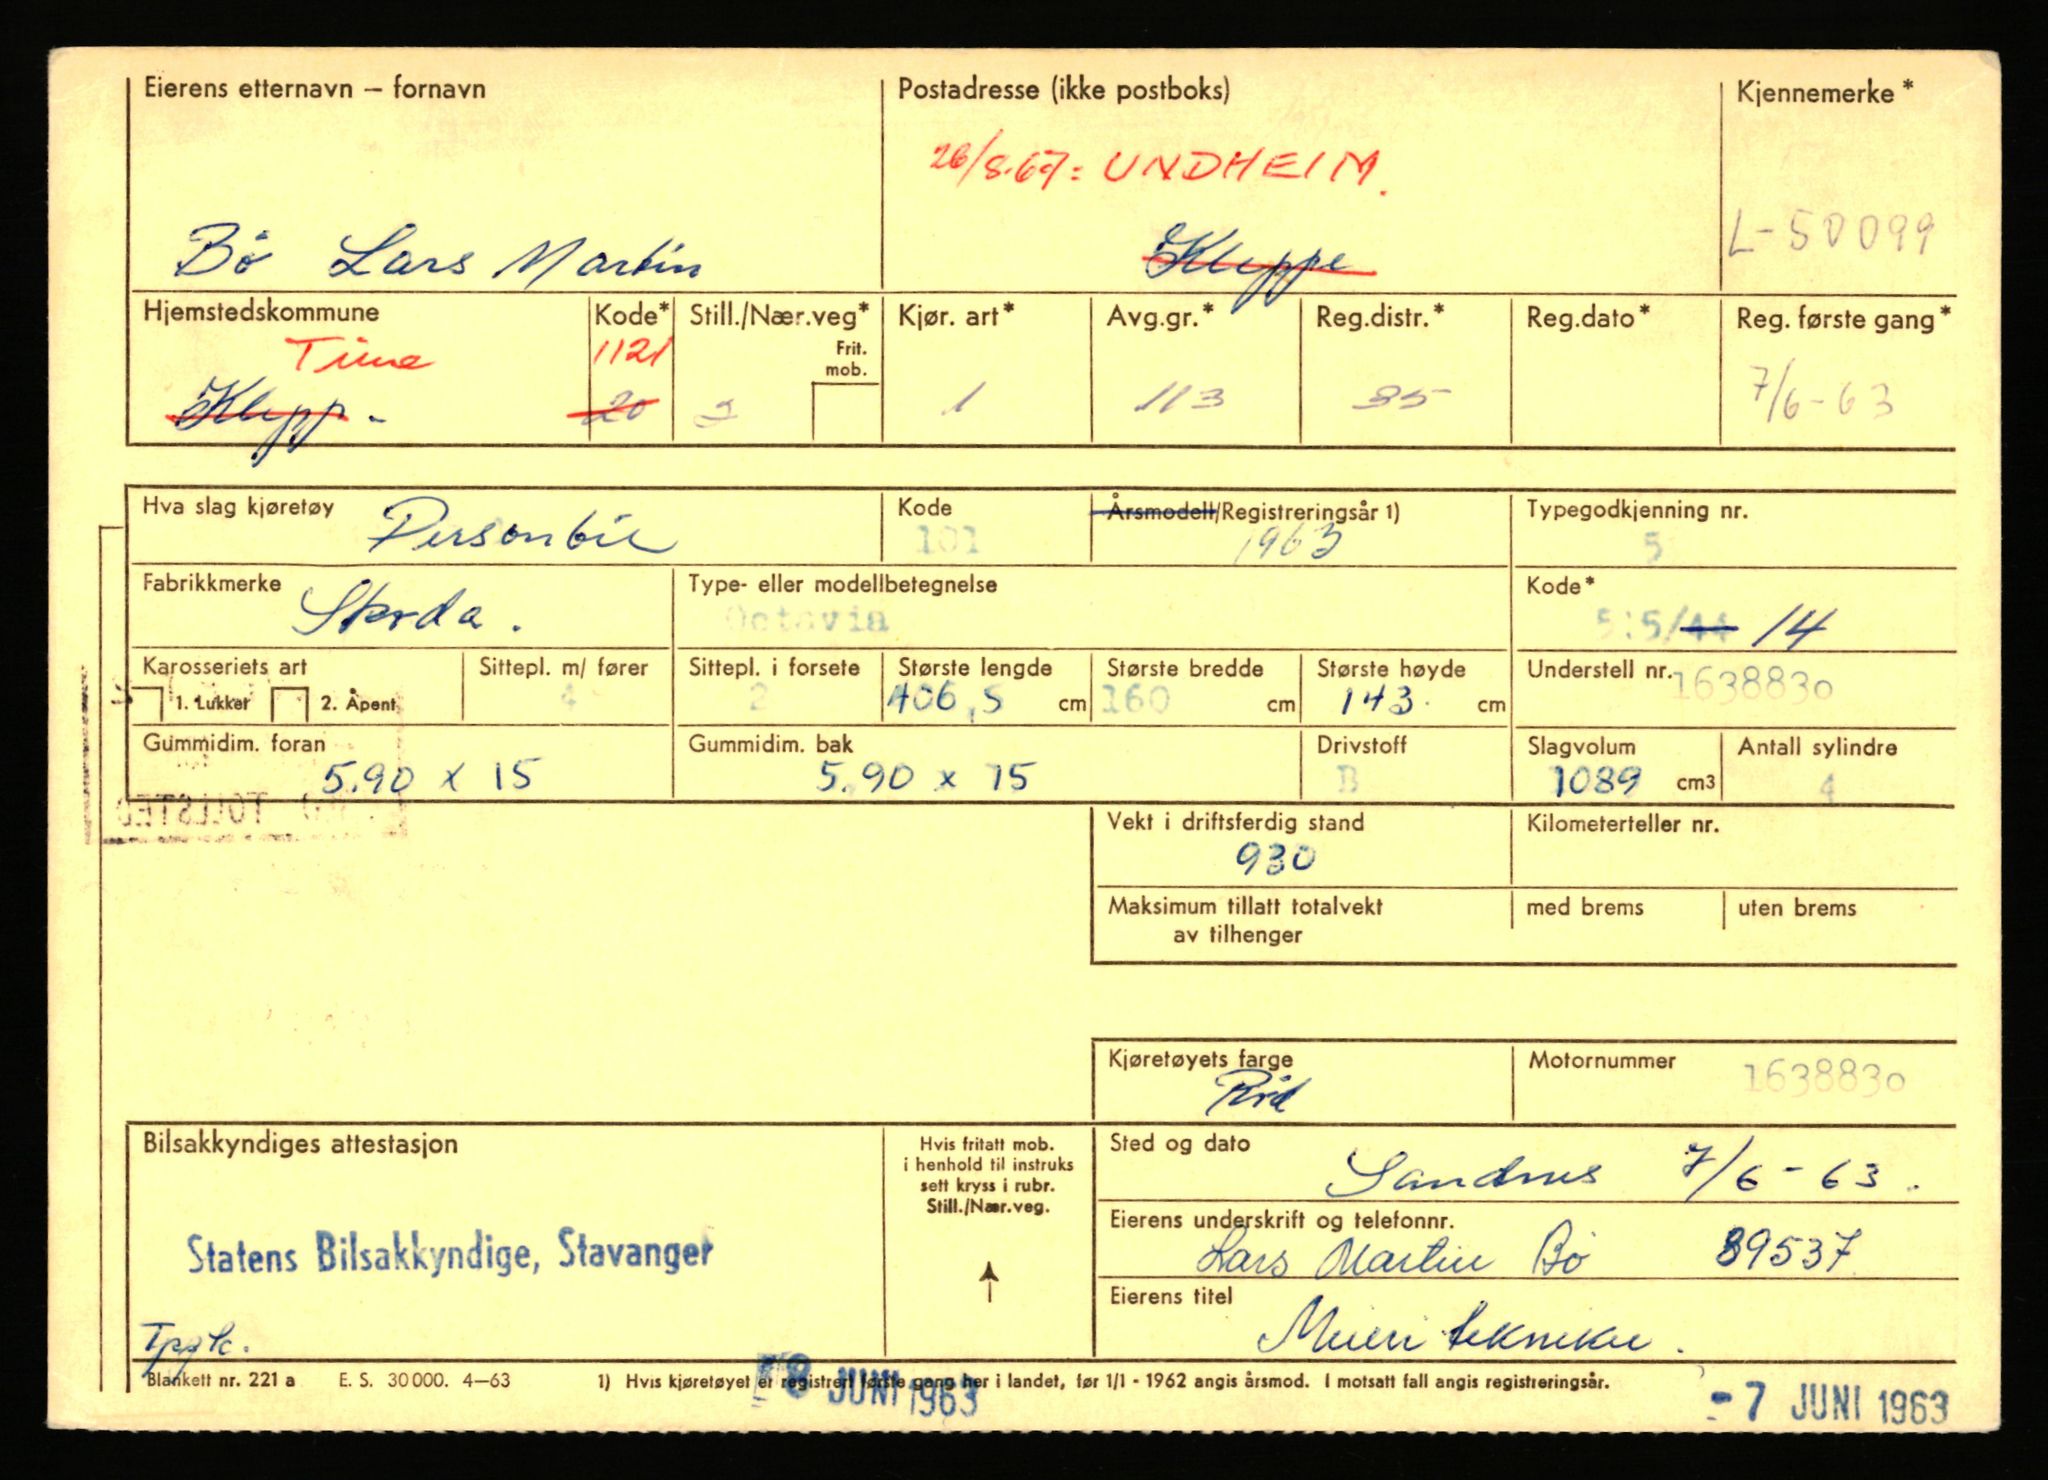 Eierens etternavn – fornavn Postadresse (ikke postboks) Kjennemerke*
26/8.67: UNDHEIM.
Bø Lars Martin Kleppe L-50099
Hjemstedskommune Kode* Still./Nær.veg* Kjør. art* Avg.gr.* Reg.distr.* Reg.dato* Reg. første gang*
Time 1121 Frit. mob.
Klepp - 20 2 1 113 35 7/6-63
Hva slag kjøretøy Personbil Kode 101 Årsmodell/Registreringsår 1) 1963 Typegodkjenning nr. 5
Fabrikkmerke Skoda. Type- eller modellbetegnelse Octavia Kode* 515/44 14
Karosseriets art Sittepl. m/ fører Sittepl. i forsete Største lengde Største bredde Største høyde Understell nr. 1638830
1. Lukket 2. Åpent 4 2 406,5 cm 160 cm 143 cm
Gummidim. foran Gummidim. bak Drivstoff Slagvolum Antall sylindre
5.90 x 15 5.90 x 15 B 1089 cm3 4
TOLLSTED
Vekt i driftsferdig stand Kilometerteller nr.
930
Maksimum tillatt totalvekt med brems uten brems
av tilhenger
Kjøretøyets farge Motornummer 1638830
Rød
Bilsakkyndiges attestasjon Hvis fritatt mob. Sted og dato
i henhold til instruks
sett kryss i rubr.
Still./Nær.veg.
Sandnes 7/6-63.
Eierens underskrift og telefonnr.
Statens Bilsakkyndige, Stavanger Lars Martin Bø 89537
Eierens titel
Tpgk. Meieritekniker.
Blankett nr. 221 a E. S. 30 000. 4—63 1) Hvis kjøretøyet er registrert første gang her i landet, før 1/1 - 1962 angis årsmod. I motsatt fall angis registreringsår.
8 JUNI 1963 -7 JUNI 1963